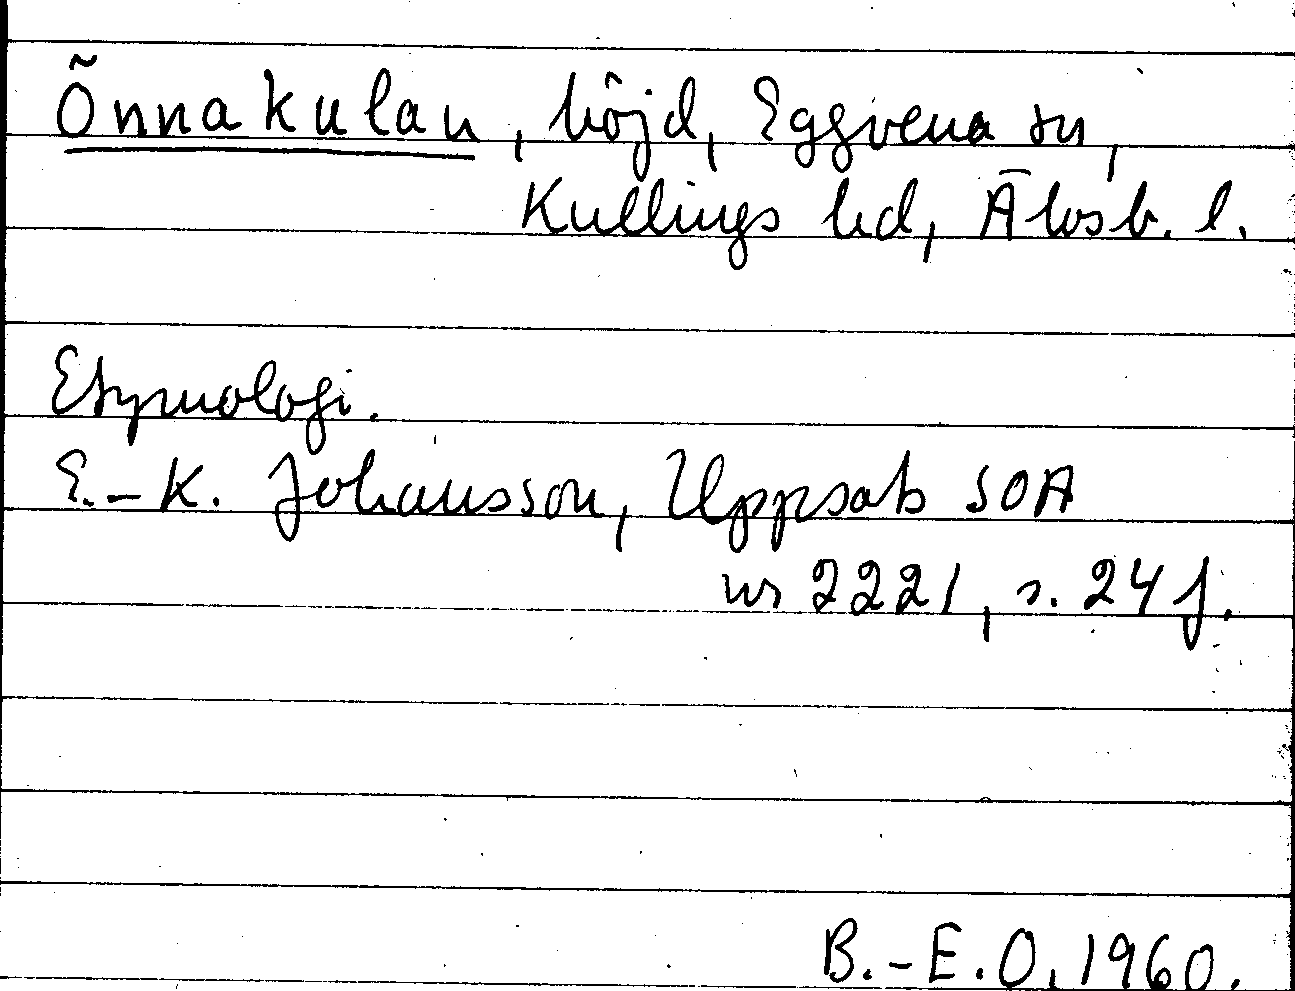 Önnakulan, höjd, Eggvena sn,
Kullings hd, Älvsb. l.
Etymologi.
E.-K. Johansson, Uppsats SOA
nr 2221, s. 24 f.
B.-E.O. 1960.